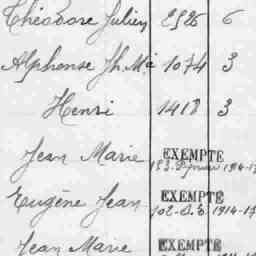 Théodore Julien 2526 6
Alphonse Jh. Mie 1074 3
Henri 1418 3
Jean Marie EXEMPTÉ
183. 1914-17
Eugène Jean EXEMPTÉ
102. 1914-17
Jean Marie EXEMPTÉ